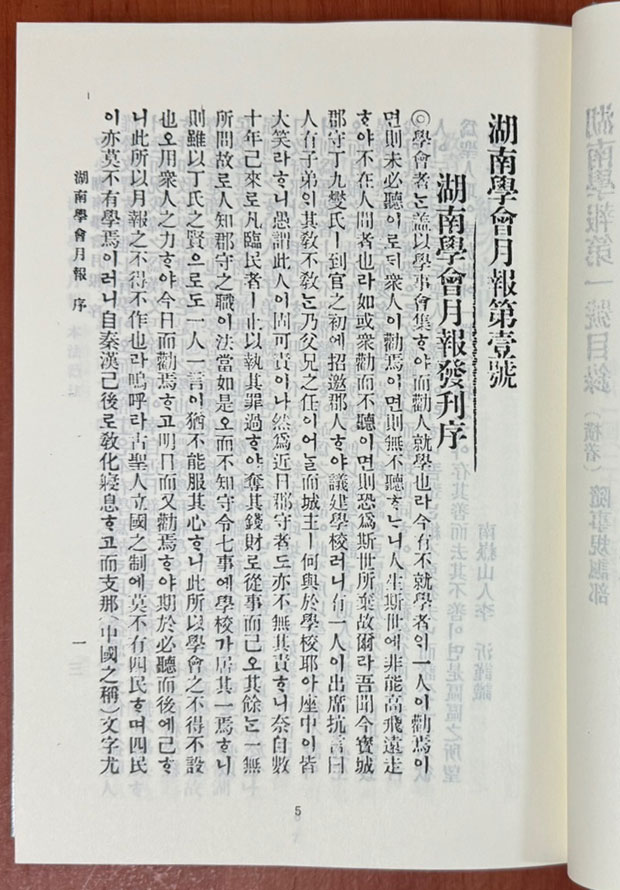 湖南學會月報第壹號
湖南學會月報發刊序
◎學會者는盖以學事會集ᄒᆞ야而勸人就學也라今有不就學者이一人이勸焉이
면則未必聽이로되衆人이勸焉이면則無不聽ᄒᆞᄂᆞ니人生斯世에非能高飛遠走
ᄒᆞ야不在人間者也라如或衆勸而不聽이면則恐爲斯世所棄故爾라吾聞今寶城
郡守丁九燮氏ㅣ到官之初에招邀郡人ᄒᆞ야議建學校러니有一人이出席抗言曰
人有子弟의其敎不敎는乃父兄之任이어늘而城主ㅣ何與於學校耶아座中이皆
大笑라ᄒᆞ니愚謂此人이固可責이나然爲近日郡守者도亦不無其責ᄒᆞ니奈自數
十年已來로凡臨民者ㅣ止以執其罪過ᄒᆞ야奪其錢財로從事而已오其餘는一無
所問故로人知郡守之職이法當如是오而不知守令七事에學校가居其一焉ᄒᆞ니
則雖以丁氏之賢으로도一人一言이猶不能服其心ᄒᆞ니此所以學會之不得不設
也오用衆人之力ᄒᆞ야今日而勸焉ᄒᆞ고明日而又勸焉ᄒᆞ야期於必聽而後에已ᄒᆞ
니此所以月報之不得不作也라嗚呼라古聖人立國之制에莫不有四民ᄒᆞ며四民
이亦莫不有學焉이러니自秦漢已後로敎化寢息ᄒᆞ고而支那(中國之稱)文字尤
湖南學會月報 序
一
5